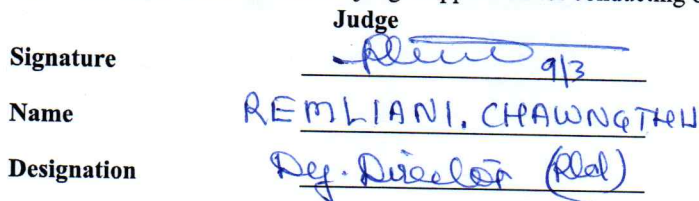 conducting
Judge
Signature 9/3
Name REMLIANI. CHAWNGTHU
Designation Dy. Director